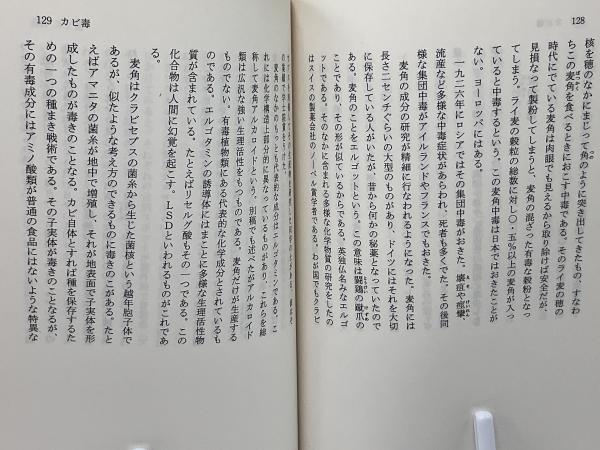 128
核を穂のなかにまじって角のように突き出してきたもの、すなわ
ちこの麦角を食べるときにおこす中毒である。そのライ麦の穂の
時代にでている麦角は肉眼でも見えるから取り除けば安全だが、
見損なって製粉してしまうと、麦角の混ざった有毒な穀粉となっ
てしまう。ライ麦の穀粒の総数に対し〇・五%以上の麦角が入っ
ていると中毒するという。この麦角中毒は日本ではおきたことが
ない。ヨーロッパにはある。
一九二六年にロシアではその集団中毒がおきた。壊疽や痙攣、
流産など多様な中毒症状があらわれ、死者も多くでた。その後同
様な集団中毒がアイルランドやフランスでもおきた。
麦角の成分の研究が精細に行なわれるようになった。麦角には
長さ二センチぐらいの大型のものがあり、ドイツにはそれを大切
に保存している人がいたが、昔から何かの秘薬となっていたので
ある。麦角のことをエルゴットという。この意味は闘鶏の蹴爪の
ことであり、その形が似ているからである。英独仏名みなエルゴ
ットである。そのなかに含まれる多様な化学物質の研究をしたの
はスイスの製薬会社のノーベル賞学者である。わが国でもクラビ
129 カビ毒
麦角のなかのもっとも代表的な成分はエルゴタミンである。こ
れには化学構造上部分的に異なっているものがあり、これらを総
称して麦角アルカロイドという。別稿でも述べたがアルカロイド
類は広汎な強い生理活性をもつものである。麦角だけが生産する
ものでない。有毒植物類にある代表的な化学成分とされているも
のである。エルゴタミンの誘導体にはまことに多様な生理活性物
質が含まれている。たとえばリセルグ酸もその一つである。この
化合物は人間に幻覚を起こす。LSDといわれるものがこれであ
る。
麦角はクラビセプスの菌糸から生じた菌核という越年胞子体で
あるが、似たような考え方のできるものに毒きのこがある。たと
えばアマニタの菌糸が地中で増殖し、それが地表面で子実体を形
成したものが毒きのことなる。カビ自体とすれば種を保存するた
めの一つの種まき戦術である。その子実体が毒きのことなるが、
その有毒成分にはアミノ酸類が普通の食品にはないような特異な